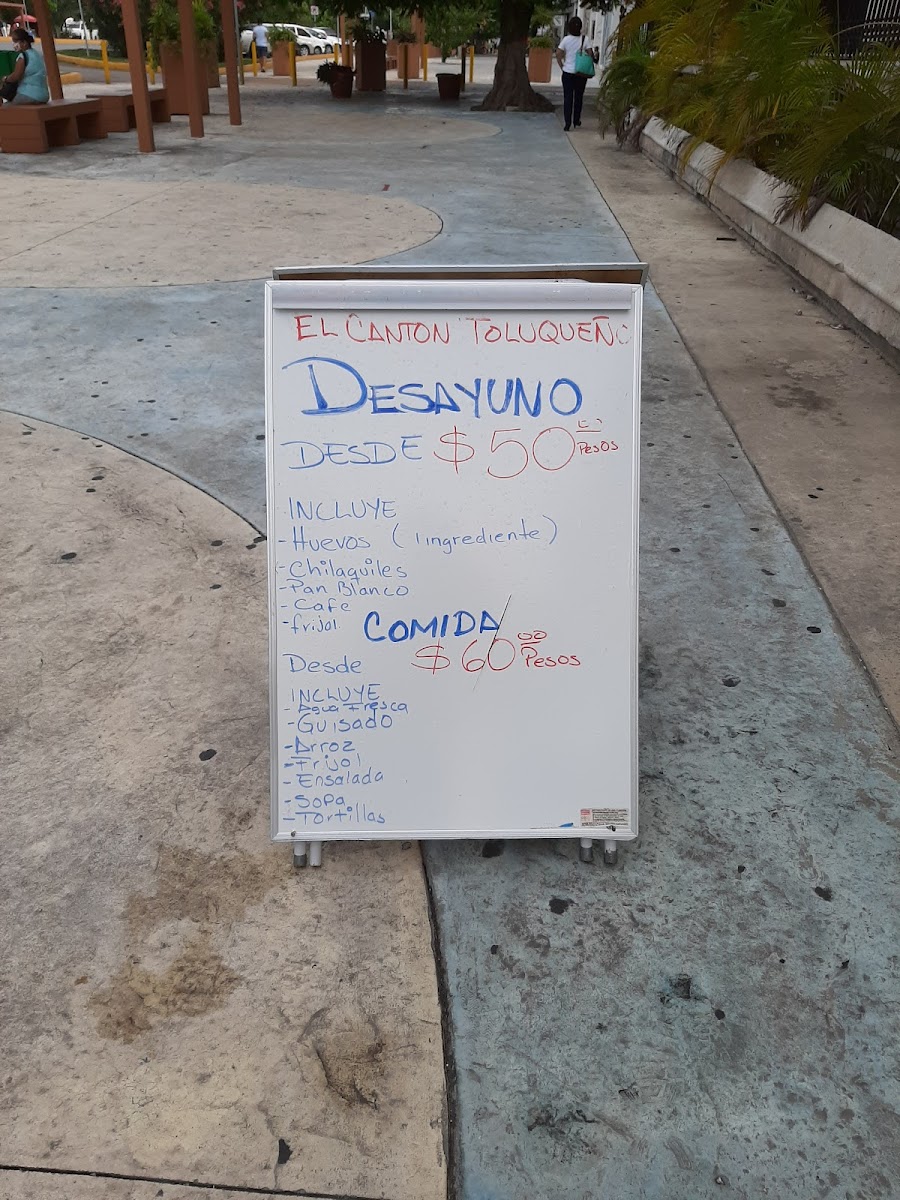 EL CANTON TOLUQUEÑO
DESAYUNO
DESDE $50 Pesos
INCLUYE
- Huevos (1 ingrediente)
- Chilaquiles
- Pan Blanco
- Cafe
- frijol
COMIDA
Desde $60.00 Pesos
INCLUYE
- Agua Fresca
- GUISADO
- Arroz
- Frijol
- Ensalada
- SoPa
- Tortillas